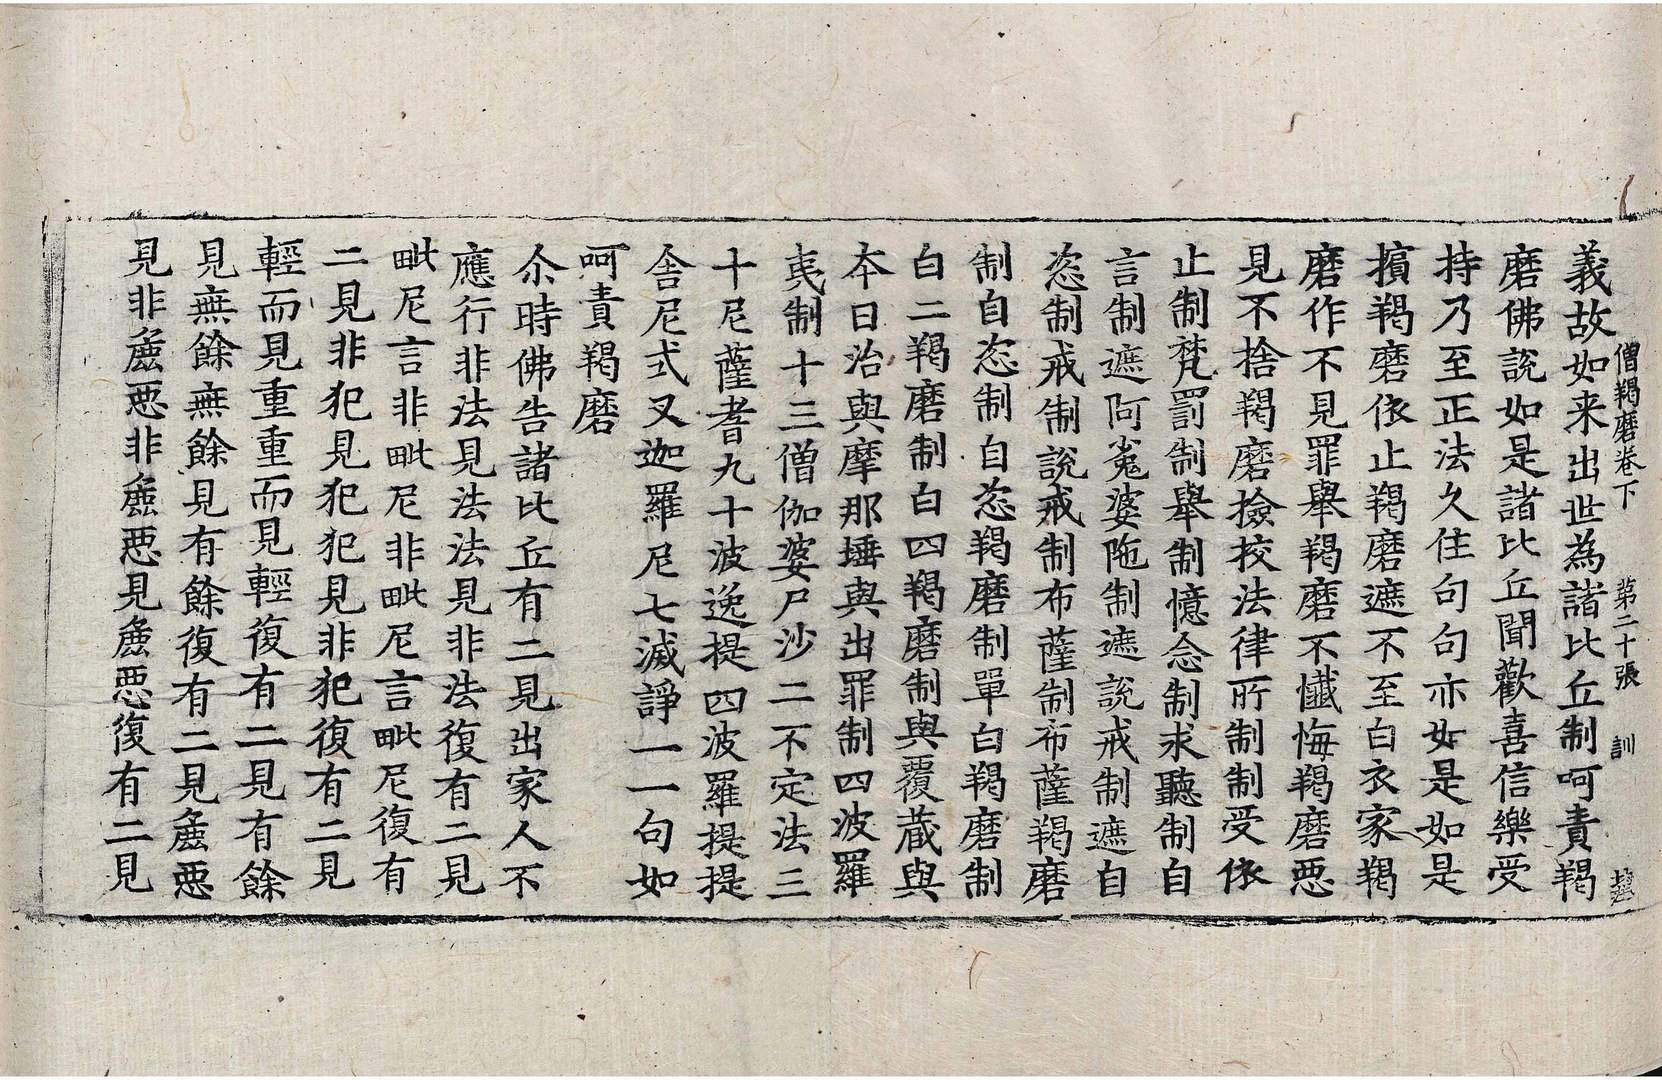 僧羯磨卷下 第二十張 訓
義故如来出世為諸比丘制呵責羯
磨佛說如是諸比丘聞歡喜信樂受
持乃至正法久住句句亦如是如是
擯羯磨依止羯磨遮不至白衣家羯
磨作不見罪舉羯磨不懺悔羯磨惡
見不捨羯磨撿挍法律所制制受依
止制梵罰制舉制憶念制求聽制自
言制遮阿㝹婆陁制遮說戒制遮自
恣制戒制說戒制布薩制布薩羯磨
制自恣制自恣羯磨制單白羯磨制
白二羯磨制白四羯磨制與覆蔵與
夲日治與摩那埵與出罪制四波羅
夷制十三僧伽婆尸沙二不定法三
十尼薩耆九十波逸提四波羅提提
舍尼式叉迦羅尼七滅諍一一句如
呵責羯磨
尒時佛告諸比丘有二見出家人不
應行非法見法法見非法復有二見
毗尼言非毗尼非毗尼言毗尼復有
二見非犯見犯犯見非犯復有二見
輕而見重重而見輕復有二見有餘
見無餘無餘見有餘復有二見麁惡
見非麁惡非麁惡見麁惡復有二見